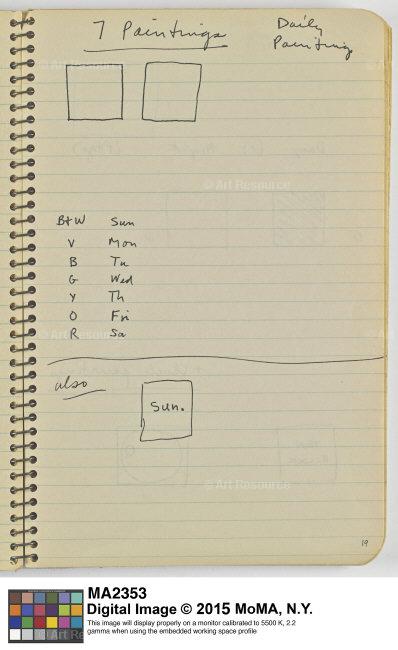 7 Paintings
Daily
Painting
© Art Resource
B+W Sun
V Mon
B Tu
G Wed
Y Th
O Fri
R Sa
also
Sun.
© Art Resource
19
MA2353
Digital Image © 2015 MoMA, N.Y.
This image will display properly on a monitor calibrated to 5500 K, 2.2
gamma when using the embedded working space profile